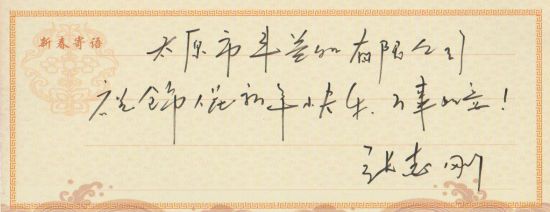 新春寄语
太原市半兰的有限公司
祝全市人民新年快乐、万事如意！
张志刚